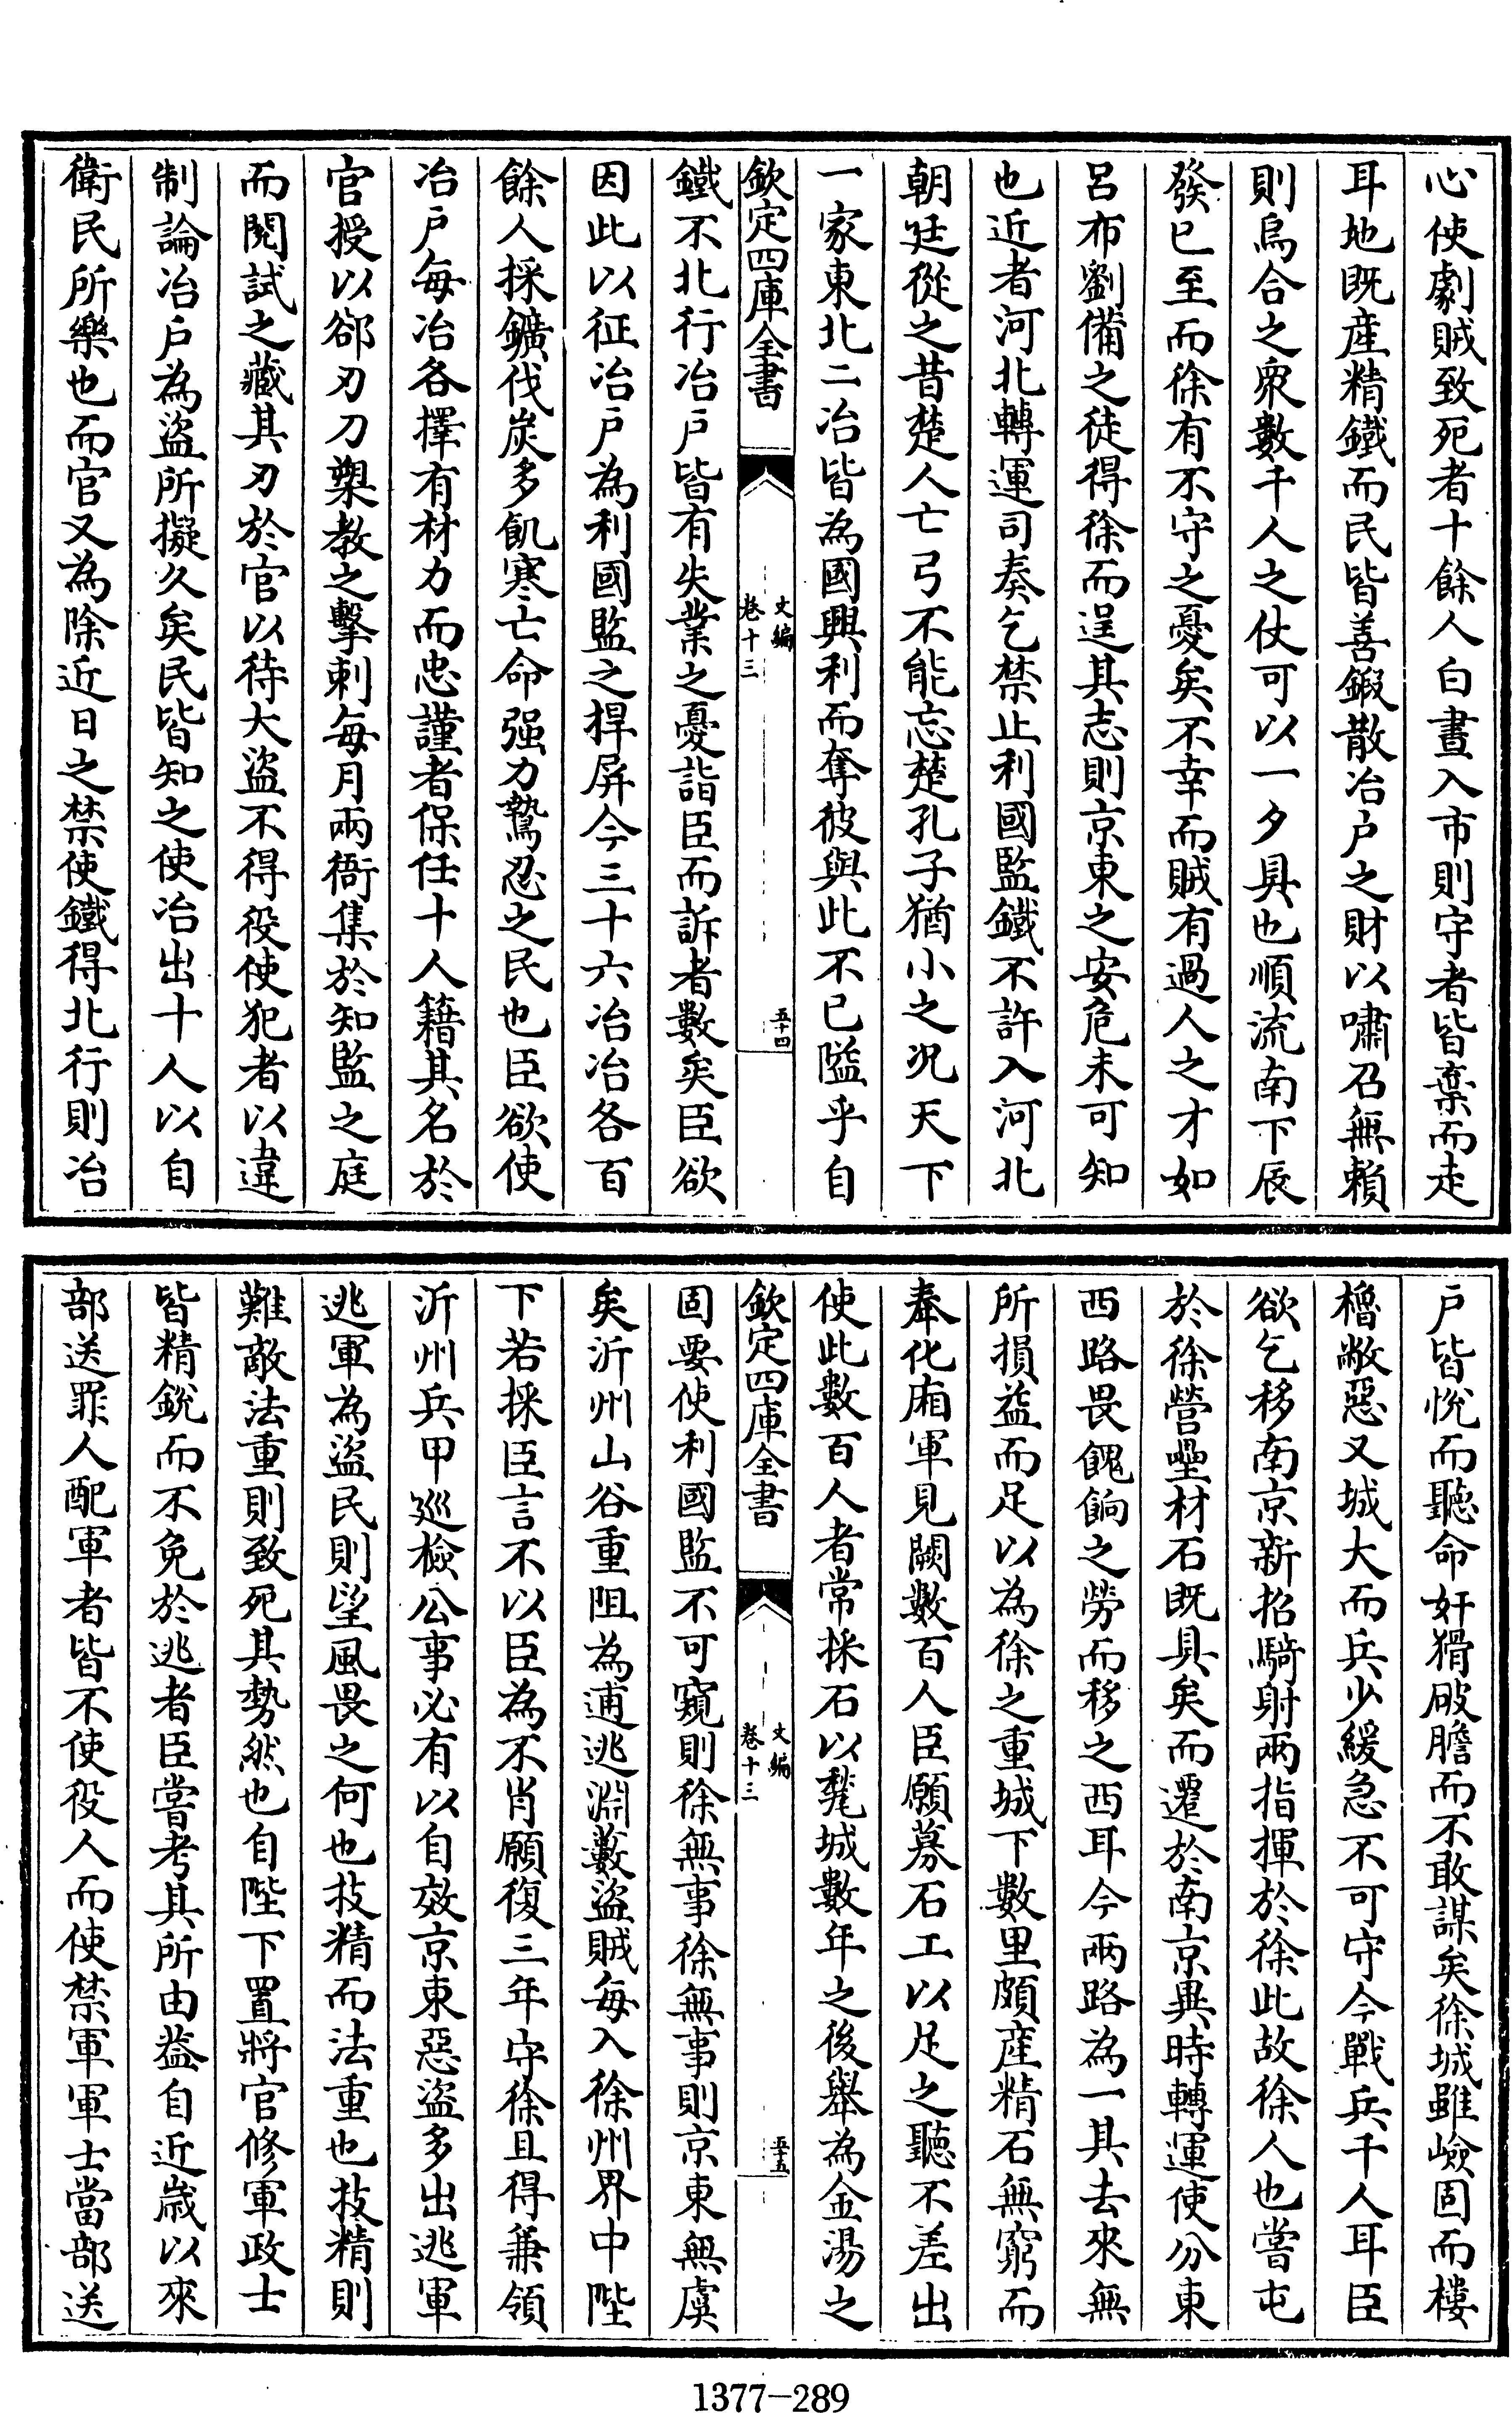 心使劇賊致死者十餘人白晝入市則守者皆棄而走
耳地既産精鐵而民皆善鍛散冶户之財以嘯召無賴
則烏合之衆數千人之仗可以一夕具也順流南下辰
發巳至而徐有不守之憂矣不幸而賊有過人之才如
呂布劉備之徒得徐而逞其志則京東之安危未可知
也近者河北轉運司奏乞禁止利國監鐵不許入河北
朝廷從之昔楚人亡弓不能忘楚孔子猶小之况天下
一家東北二冶皆為國興利而奪彼與此不已隘乎自
欽定四庫全書
文編
卷十三
五十四
鐵不北行冶户皆有失業之憂詣臣而訴者數矣臣欲
因此以征冶户為利國監之捍屏今三十六冶冶各百
餘人採鑛伐炭多飢寒亡命强力鷙忍之民也臣欲使
冶户每冶各擇有材力而忠謹者保任十人籍其名於
官授以郤刃刀槊教之擊刺每月兩衙集於知監之庭
而閱試之藏其刃於官以待大盜不得役使犯者以違
制論冶户為盜所擬久矣民皆知之使冶出十人以自
衛民所樂也而官又為除近日之禁使鐵得北行則冶
户皆悅而聽命奸猾破膽而不敢謀矣徐城雖嶮固而樓
櫓敝惡又城大而兵少緩急不可守今戰兵千人耳臣
欲乞移南京新招騎射兩指揮於徐此故徐人也嘗屯
於徐營壘材石既具矣而遷於南京異時轉運使分東
西路畏餽餉之勞而移之西耳今兩路為一其去來無
所損益而足以為徐之重城下數里頗産精石無窮而
奉化廂軍見闕數百人臣願募石工以足之聽不差出
使此數百人者常採石以甃城數年之後舉為金湯之
欽定四庫全書
文編
卷十三
五十五
固要使利國監不可窺則徐無事徐無事則京東無虞
矣沂州山谷重阻為逋逃淵藪盜賊每入徐州界中陛
下若採臣言不以臣為不肖願復三年守徐且得兼領
沂州兵甲巡檢公事必有以自效京東惡盜多出逃軍
逃軍為盜民則望風畏之何也技精而法重也技精則
難敵法重則致死其勢然也自陛下置將官修軍政士
皆精銳而不免於逃者臣嘗考其所由葢自近嵗以來
部送罪人配軍者皆不使役人而使禁軍軍士當部送
1377-289